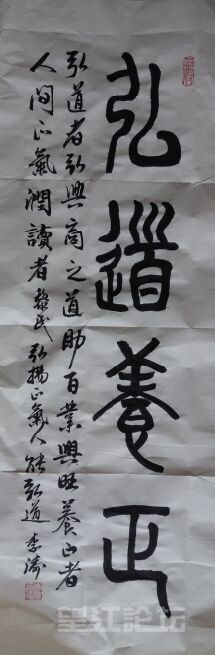 弘道養正
弘道者弘興商之道助百業興旺養正者
人间正氣潤讀者黎民弘揚正氣人能弘道 李濤
望江論坛